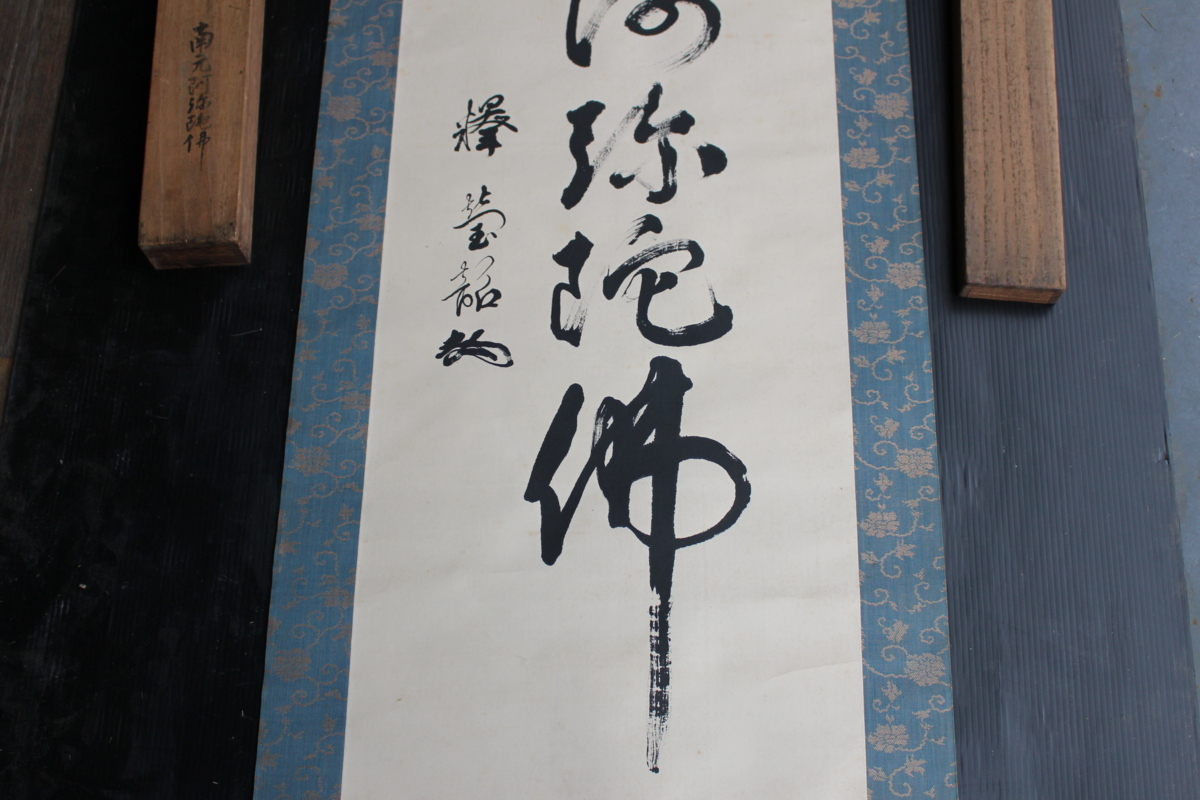 阿弥陀佛
釋瑩韶
南无阿弥陀佛